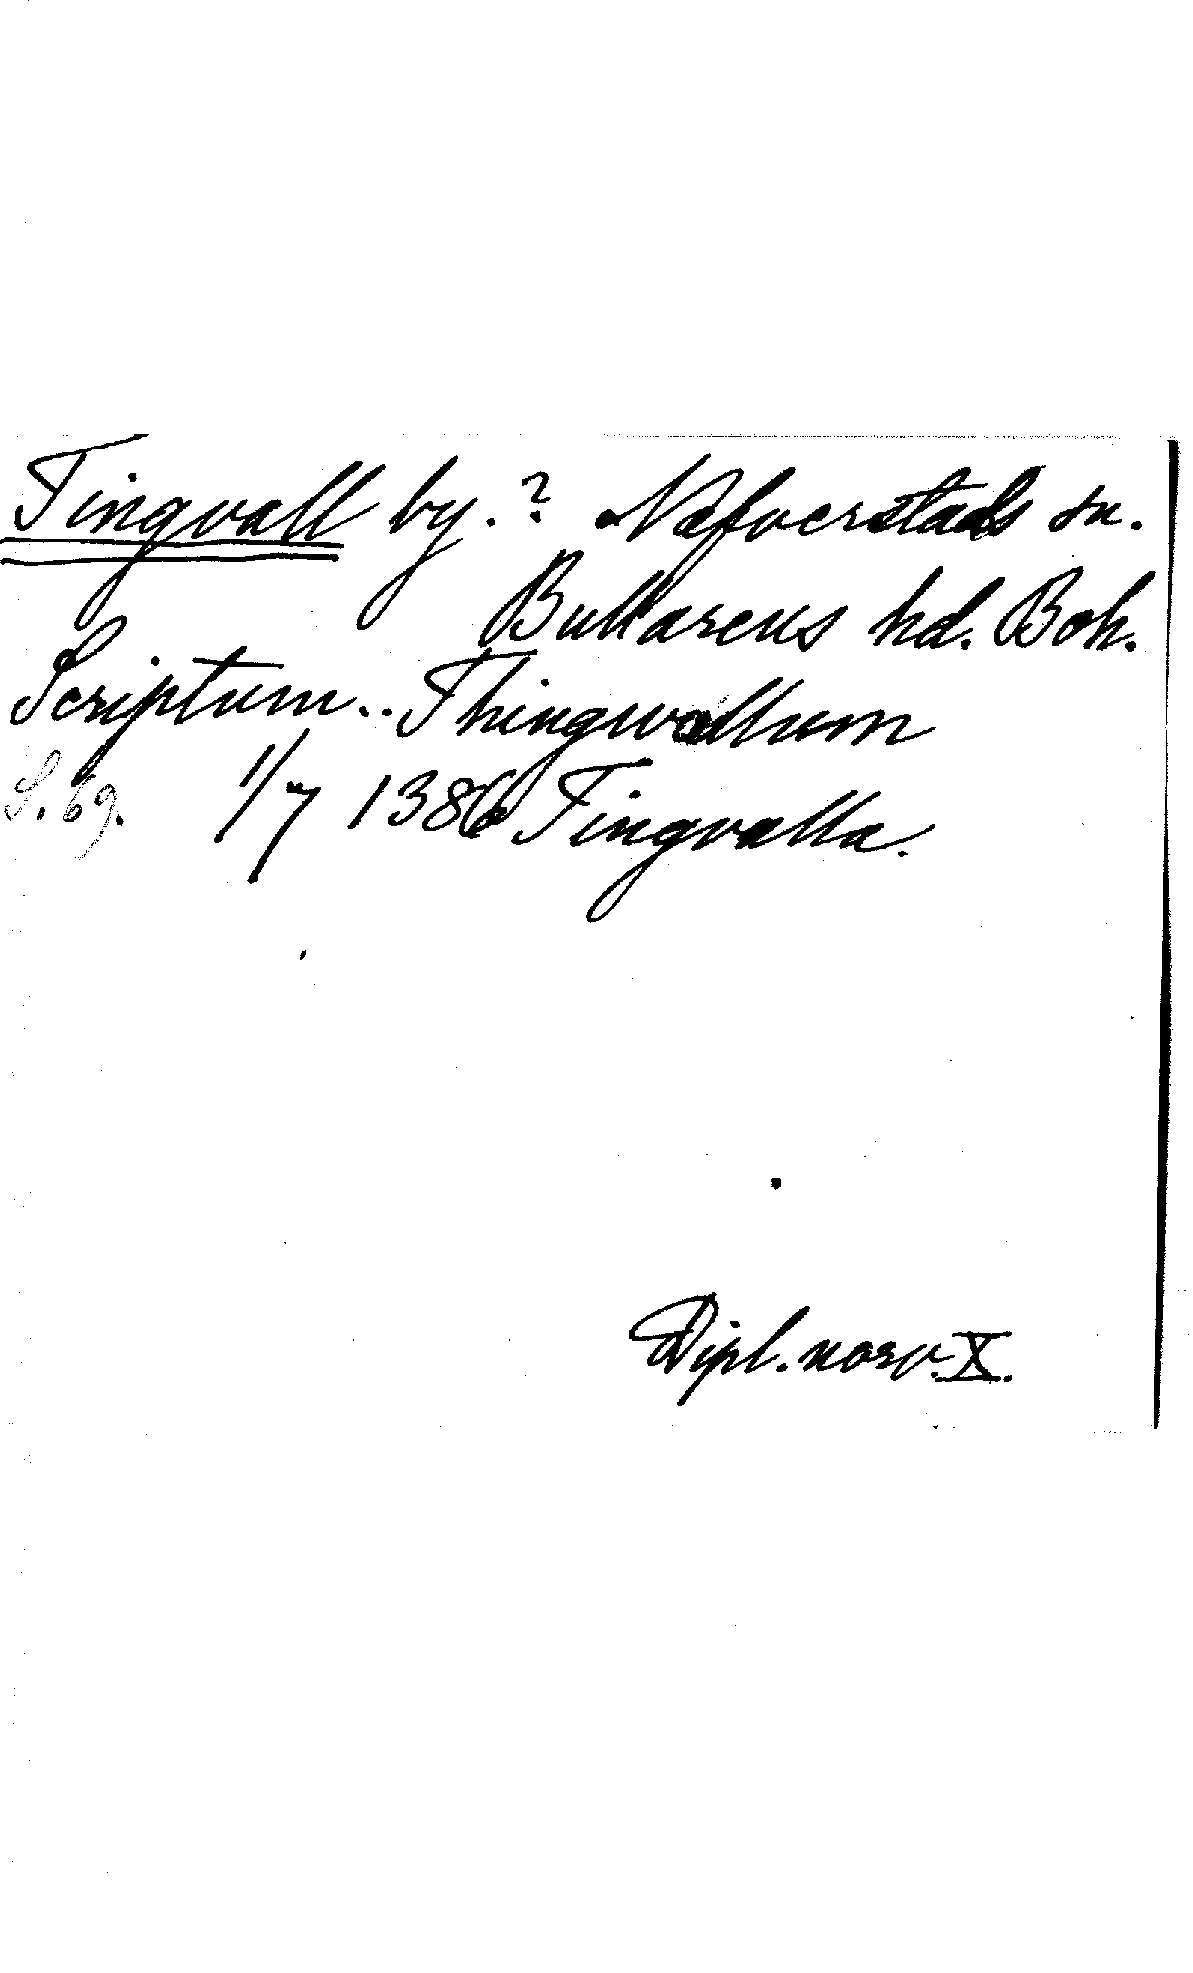 Tingvall by.? Nafverstads sn.
Bullarens hd. Boh.
Scriptum .. Thingwallum
S. 69. 1/7 1386 Tingvalla.
Dipl. norv. X.